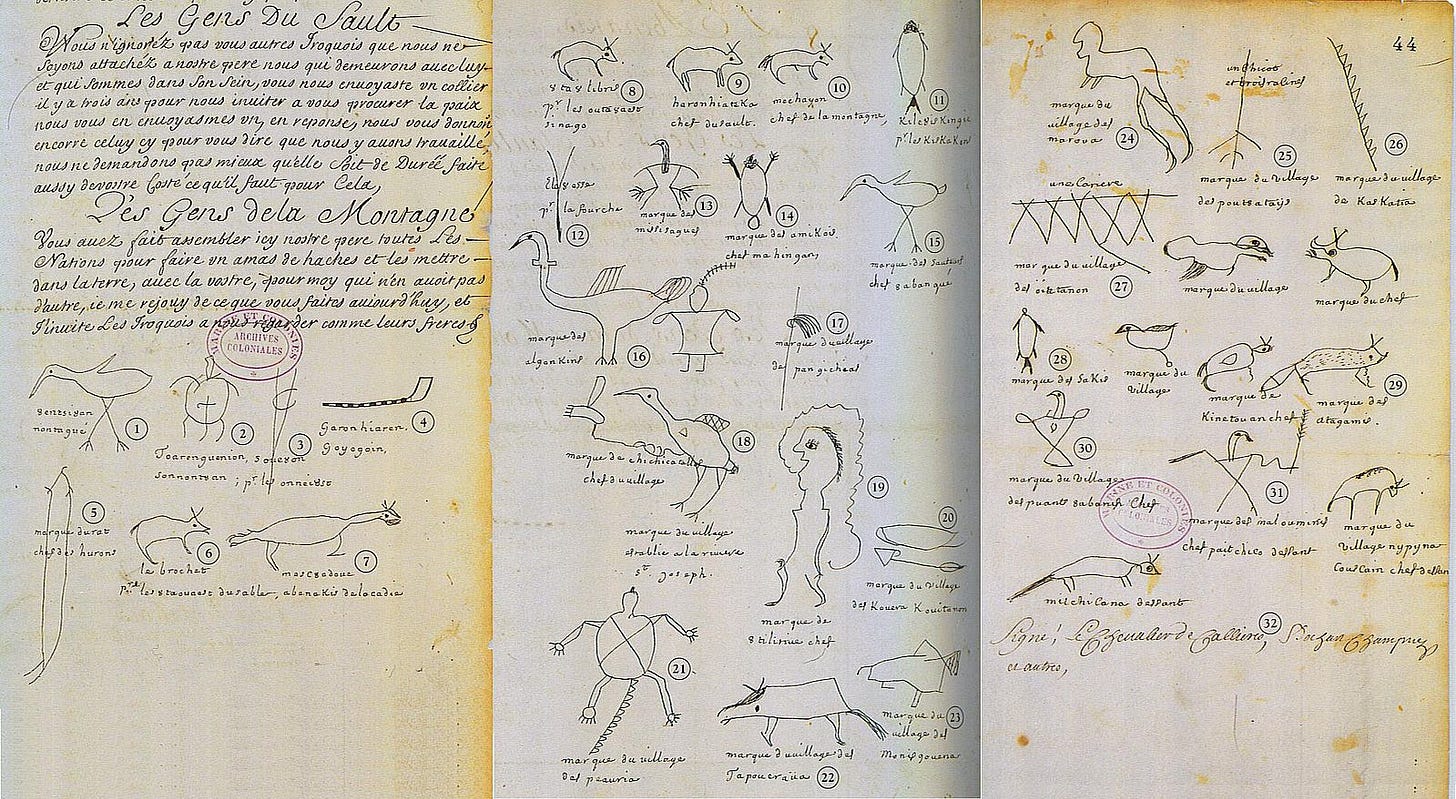 Les Gens Du Sault
Vous n'ignoréz pas vous autres Iroquois que nous ne
soyons attachéz a nostre pere nous qui demeurons avec luy
et qui sommes dans son sein, vous nous envoyaste un collier
il y a trois ans pour nous inviter a vous procurer la paix
nous vous en envoyasmes vn, en reponse, nous vous donnons
encorre celuy cy pour vous dire que nous y auons travaillé,
nous ne demandons pas mieux qu'elle soit de Durée faite
aussy de vostre Costé ce qu'il faut pour Cela,
Les Gens de la Montagne
Vous auez fait assembler icy nostre pere toutes Les
Nations pour faire vn amas de haches et les mettre
dans la terre, auec la vostre, pour moy qui n'en auoit pas
d'autre, ie me rejouy de ce que vous faites aujourd'huy, et
J'inuite Les Iroquois a nous regarder comme leurs freres
MARINE ET COLONIES
ARCHIVES
COLONIALES
8entsi8an
nontagué
1
2
Toarenguenion,
sonnont8an
3
; pr les onnei8st
Garonhiaren,
Goyogoin,
4
5
marque du rat
chef des hurons
le brochet
6
pr les 8ta8aest du sable,
7
abenakis de lacadie
8
pr les outa8aest
sinago
haronhiateka
9
chef du sault.
mechayon
10
chef de la montagne,
11
pr les KisKaKons
pr la fourche
12
marque des
13
missisagues
14
marque des amikois,
chef mahingan,
15
marque des sauteurs
chef 8abangué
marque des
algonkins
16
17
marque du village
de pangicheas
18
marque de chichicatalo
chef du village
marque du village
establie a la riviere
st. joseph.
19
marque de
8tilirine chef
20
marque du village
des Kouera Kouitanon
21
marque du village
des peauria
marque du village des
Tapouaroua
22
marque du
23
village des
Monisgouena
44
marque du
village des
24
marova
un chicot
25
marque du village
des poutouatamis
26
marque du village
de KasKatia
une Cariere
marque du village
des 8iatanon
27
marque du village
marque du chef
28
marque des saKis
marque du
village
marque de
Kinetouan chef
29
marque des
8tagamis.
30
marque du village
des puant 8abanis Chef
MARINE ET COLONIES
31
marque des maloumines
chef paitchico
marque du
village nypyna
32
Signé, Le Chevalier de Callieres,
et autres,